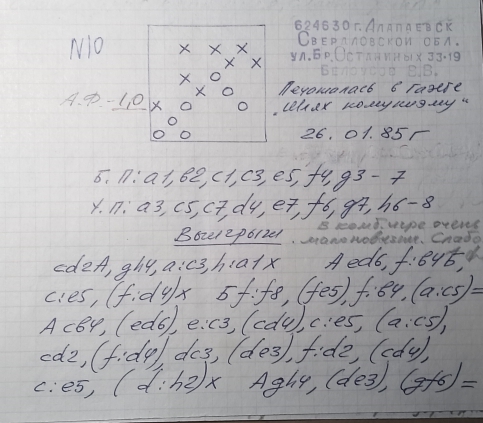 N10
624630 г. Алапаевск
Свердловской обл.
ул. Бр. Останиных 33-19
Белоусов Е.В.
А.Ф.-1,0
Печаталась в газете
"Шлях комунизму"
26.01.85г
Б.П: a1, b2, c1, c3, e5, f4, g3 - 7
Ч.П: a3, c5, c7, d4, e7, f6, g7, h6-8
Выигрыш
В комб. игре очень
малановизни. Слабо
cd2A, gh4, a:c3, h:a1 x
Aed6, f:b4Б,
c:e5, (f:d4)x
Бf:f8, (fe5), f:b4, (a:c5)=
Acb4, (ed6), e:c3, (cd4), c:e5, (a:c5),
cd2, (f:d4), dc3, (de3), f:d2, (cd4),
c:e5, (d:h2)x
Agh4, (de3), (gf6)=